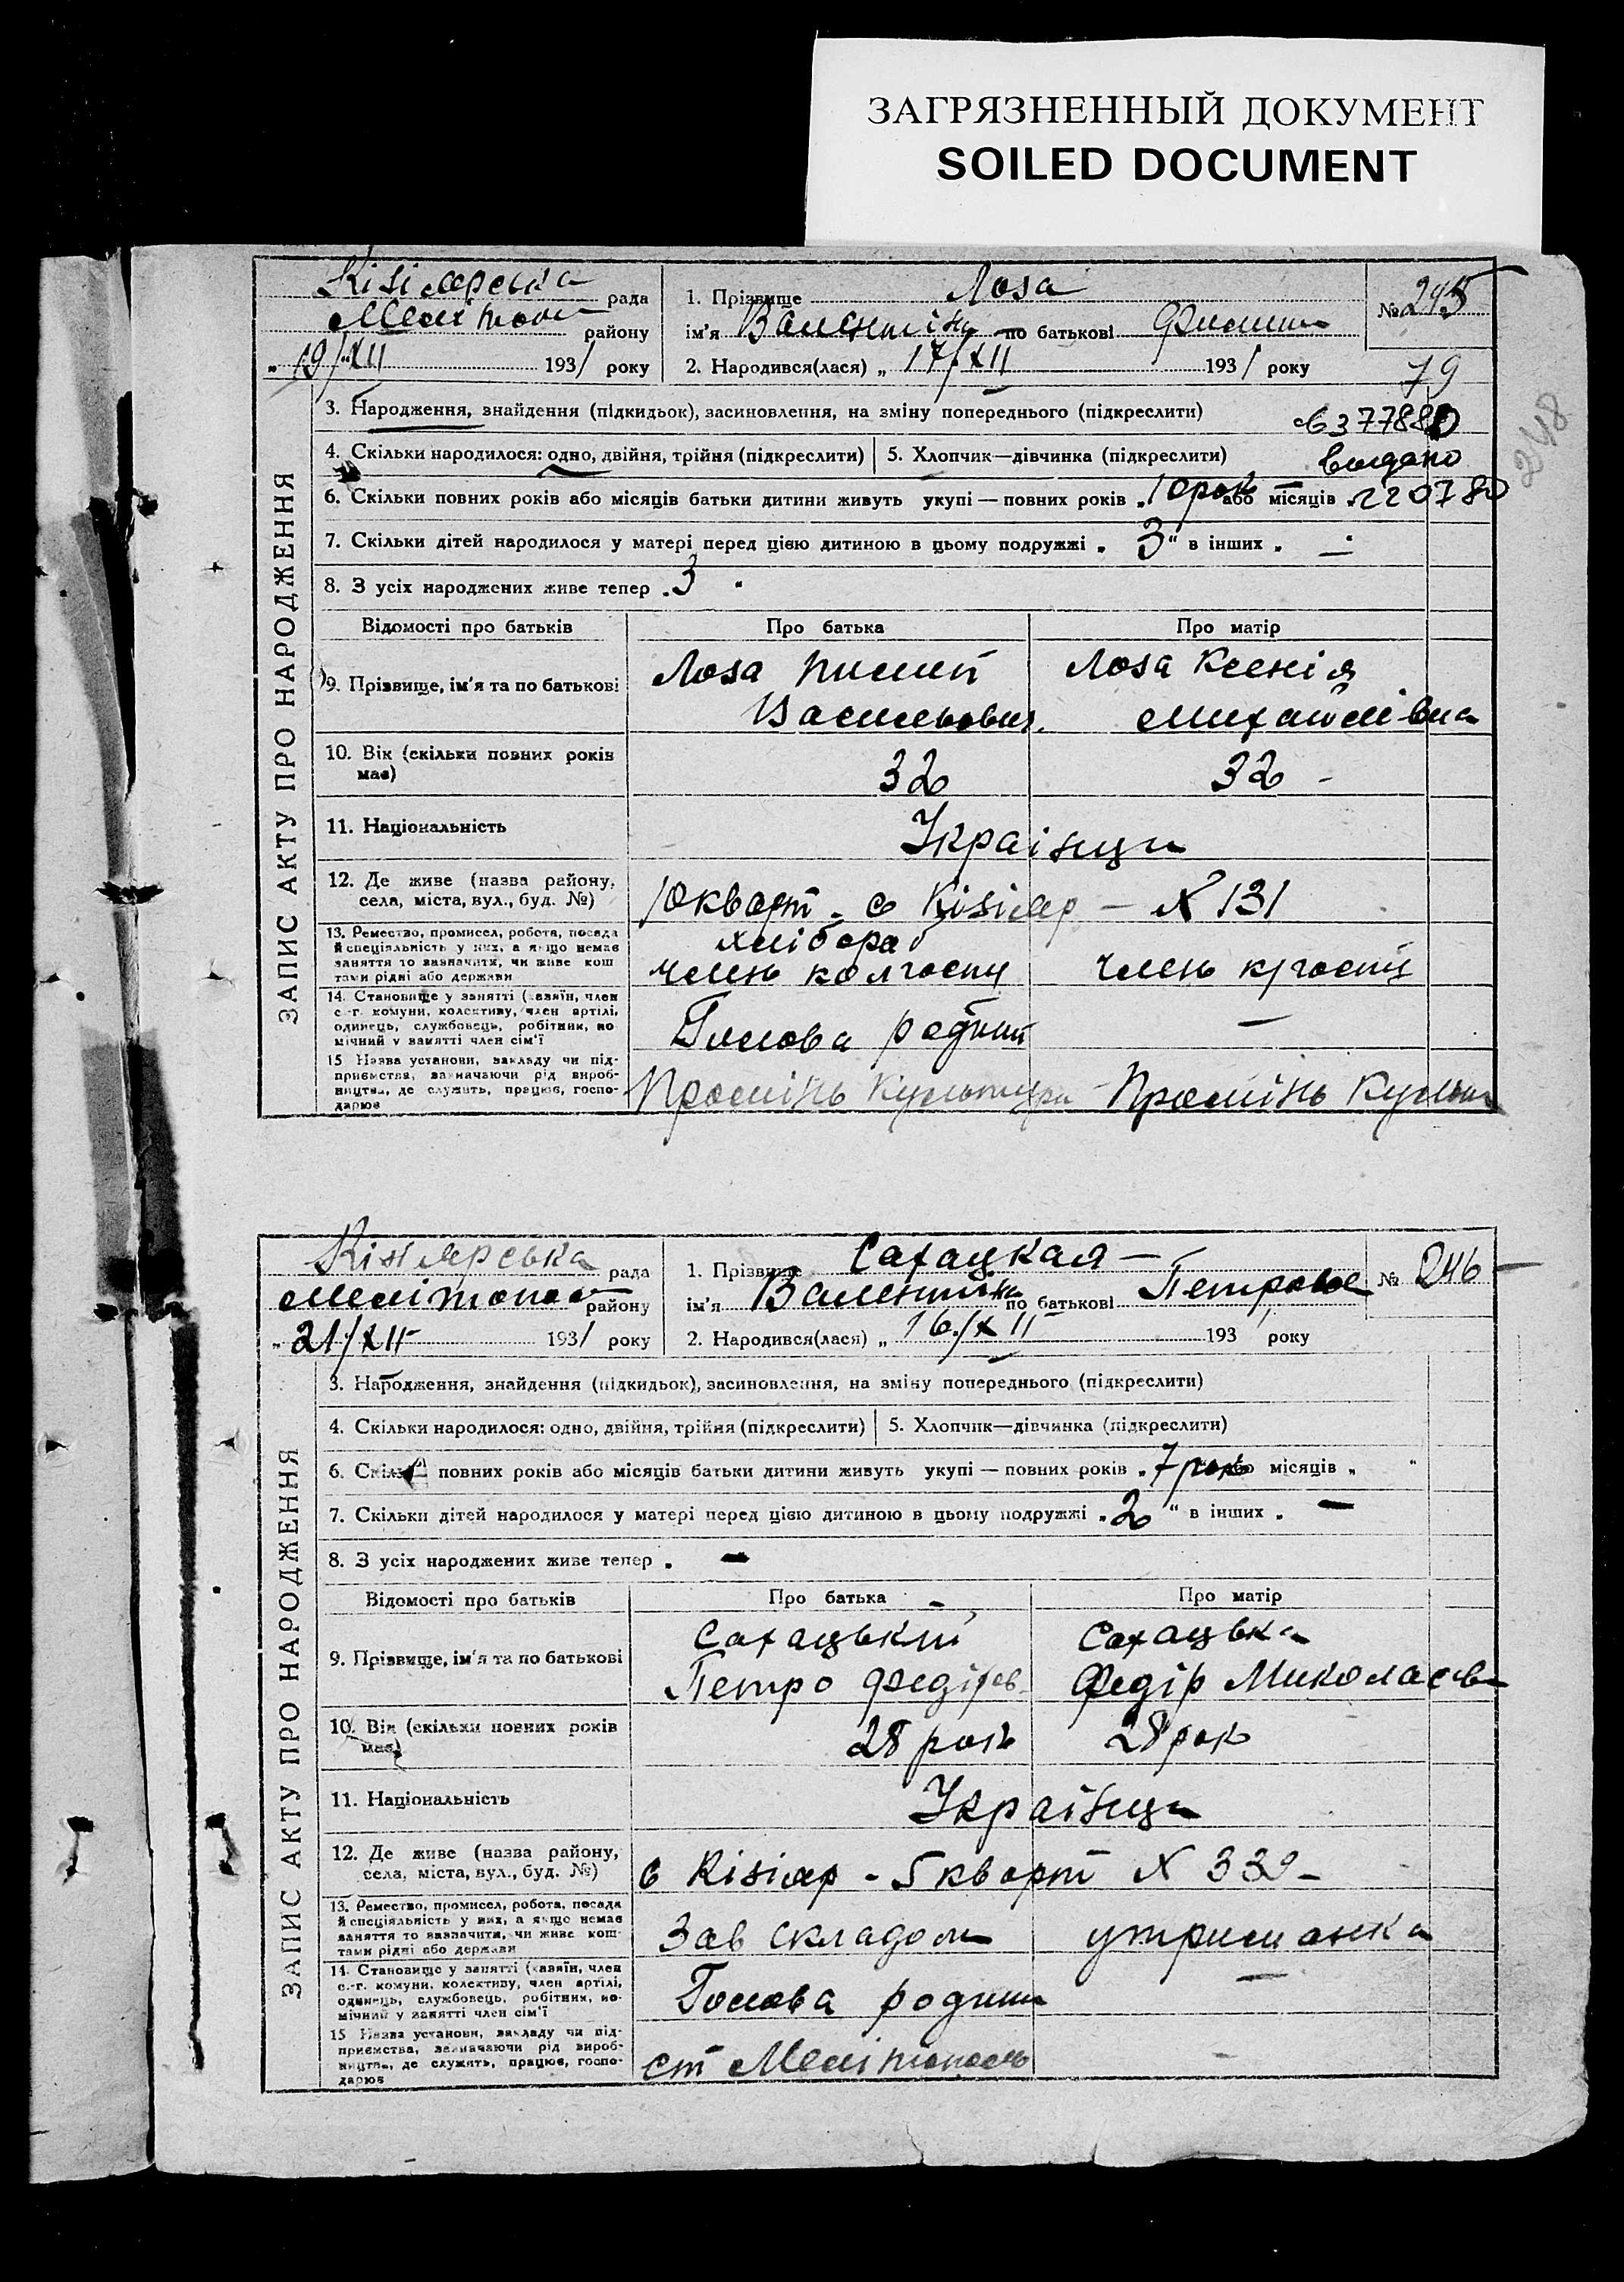 ЗАГРЯЗНЕННЫЙ ДОКУМЕНТ
SOILED DOCUMENT
Кізіярська рада
Меліто району
„19/XII 1931 року
1. Прізвище Лоза
ім'я Валентіна по батькові Филип
2. Народився(лася) „17/XII 1931 року
№ 245
79
248
ЗАПИС АКТУ ПРО НАРОДЖЕННЯ
3. Народження, знайдення (підкидьок), засиновлення, на зміну попереднього (підкреслити)
637788
4. Скільки народилося: одно, двійня, трійня (підкреслити) 5. Хлопчик—дівчинка (підкреслити)
видано
6. Скільки повних років або місяців батьки дитини живуть укупі — повних років „10 рок або місяців 220780
7. Скільки дітей народилося у матері перед цією дитиною в цьому подружжі „3" в інших „ —
8. З усіх народжених живе тепер „3"
Відомості про батьків Про батька Про матір
9. Прізвище, ім'я та по батькові Лоза Пилип Васильович Лоза Ксенія Михайлівна
10. Вік (скільки повних років має) 32 32 -
11. Національність Українци
12. Де живе (назва району, села, міста, вул., буд. №) 10 кварт. с Кізіяр — N 131
13. Ремество, промисел, робота, посада й спеціяльність у них, а якщо немає заняття то зазначити, чи живе коштами рідні або держави
хлібораб
член колгоспу член кгоспу
14. Становище у занятті (хазяїн, член с.-г. комуни, колективу, член артілі, одинець, службовець, робітник, помічний у занятті член сім'ї Голова родини —
15 Назва установи, закладу чи підприємства, зазначаючи рід виробництва, де служить, працює, господарює Промінь Культури Промінь Культ
Кізіярська рада
Мелітопол району
„21/XII 1931 року
1. Прізвище Сахацкая —
ім'я Валентіна по батькові Петровне
2. Народився(лася) „16/XII 193 року
№ 246 —
ЗАПИС АКТУ ПРО НАРОДЖЕННЯ
3. Народження, знайдення (підкидьок), засиновлення, на зміну попереднього (підкреслити)
4. Скільки народилося: одно, двійня, трійня (підкреслити) 5. Хлопчик—дівчинка (підкреслити)
6. Скільки повних років або місяців батьки дитини живуть укупі — повних років „7 рок або місяців „ "
7. Скільки дітей народилося у матері перед цією дитиною в цьому подружжі „2" в інших „ —
8. З усіх народжених живе тепер „ —
Відомості про батьків Про батька Про матір
9. Прізвище, ім'я та по батькові Сахацький Петро Федіров Сахацька Федір Миколаєв
10. Вік (скільки повних років має) 28 рок 28 рок
11. Національність Українци
12. Де живе (назва району, села, міста, вул., буд. №) с Кізіяр - 5 кварт N 332 -
13. Ремество, промисел, робота, посада й спеціяльність у них, а якщо немає заняття то зазначити, чи живе коштами рідні або держави Зав складом утриманка
14. Становище у занятті (хазяїн, член с.-г. комуни, колективу, член артілі, одинець, службовець, робітник, помічний у занятті член сім'ї Голова родини —
15 Назва установи, закладу чи підприємства, зазначаючи рід виробництва, де служить, працює, господарює ст Мелітополь -